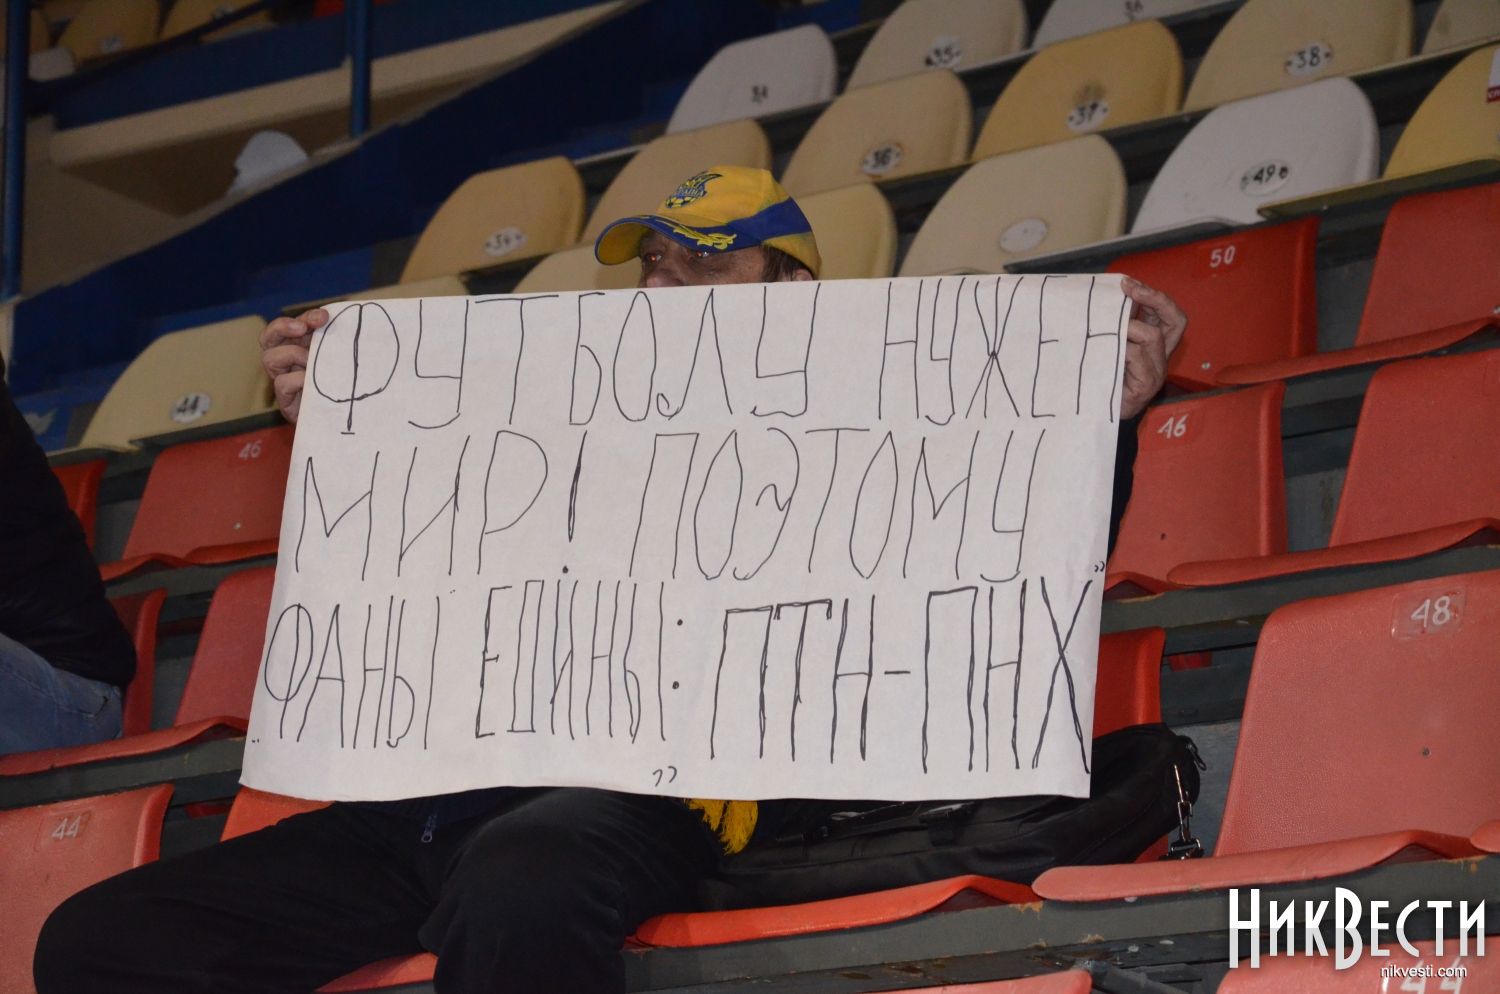 ФУТБОЛУ НУЖЕН
МИР! ПОЭТОМУ
"ФАНЫ" ЕДИНЫ: "ПТН-ПНХ"
34
35
38
37
36
49
34
44
46
50
46
48
44
44
НИКВЕСТИ
nikvesti.com